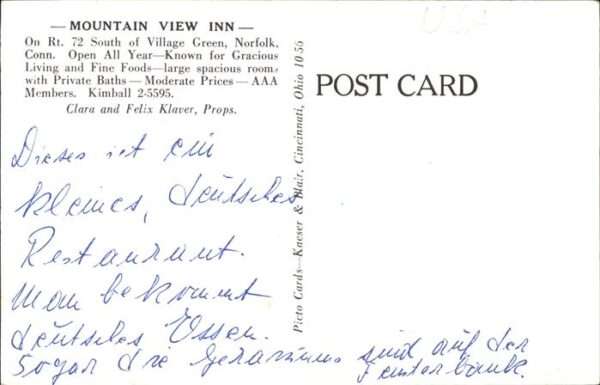 — MOUNTAIN VIEW INN —
On Rt. 72 South of Village Green, Norfolk,
Conn. Open All Year—Known for Gracious
Living and Fine Foods—large spacious rooms
with Private Baths — Moderate Prices — AAA
Members. Kimball 2-5595.
Clara and Felix Klaver, Props.
Dieses ist ein
kleines, deutsches
Restaurant.
Man bekommt
deutsches Essen.
Sogar die Geraniums sind auf der
Fensterbank.
Picto Cards—Kaeser & Blair, Cincinnati, Ohio 10-56
POST CARD
USA